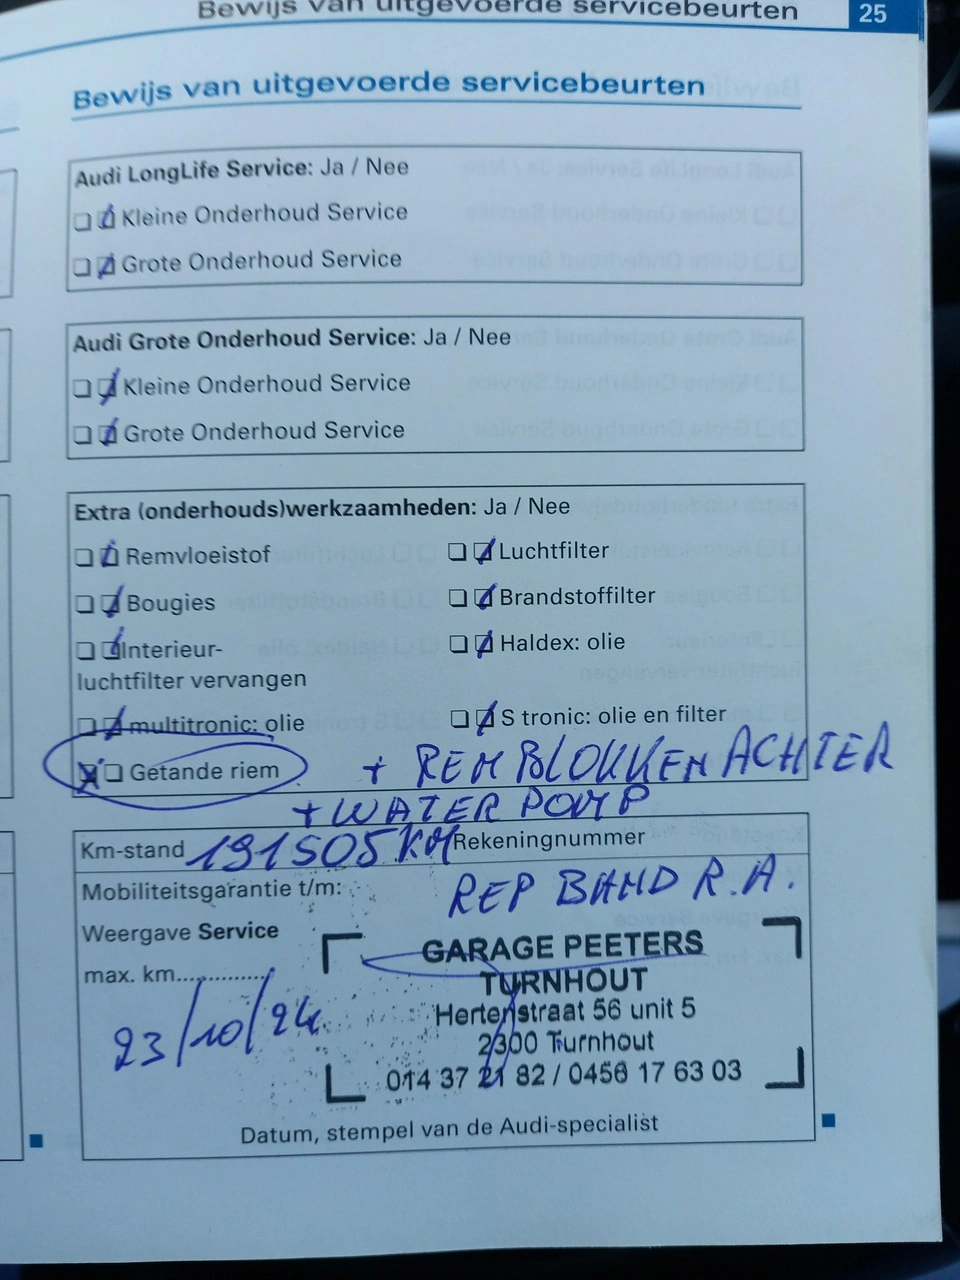 Bewijs van uitgevoerde servicebeurten 25
Bewijs van uitgevoerde servicebeurten
Audi LongLife Service: Ja / Nee
Kleine Onderhoud Service
Grote Onderhoud Service
Audi Grote Onderhoud Service: Ja / Nee
Kleine Onderhoud Service
Grote Onderhoud Service
Extra (onderhouds)werkzaamheden: Ja / Nee
Remvloeistof Luchtfilter
Bougies Brandstoffilter
Interieur- Haldex: olie
luchtfilter vervangen
multitronic: olie S tronic: olie en filter
Getande riem + REMBLOKKEN ACHTER
+ WATER POMP
Km-stand 191505 KM Rekeningnummer
Mobiliteitsgarantie t/m: REP BAND R.A.
Weergave Service
max. km..............
23/10/24
GARAGE PEETERS
TURNHOUT
Hertenstraat 56 unit 5
2300 Turnhout
014 37 21 82 / 0456 17 63 03
Datum, stempel van de Audi-specialist